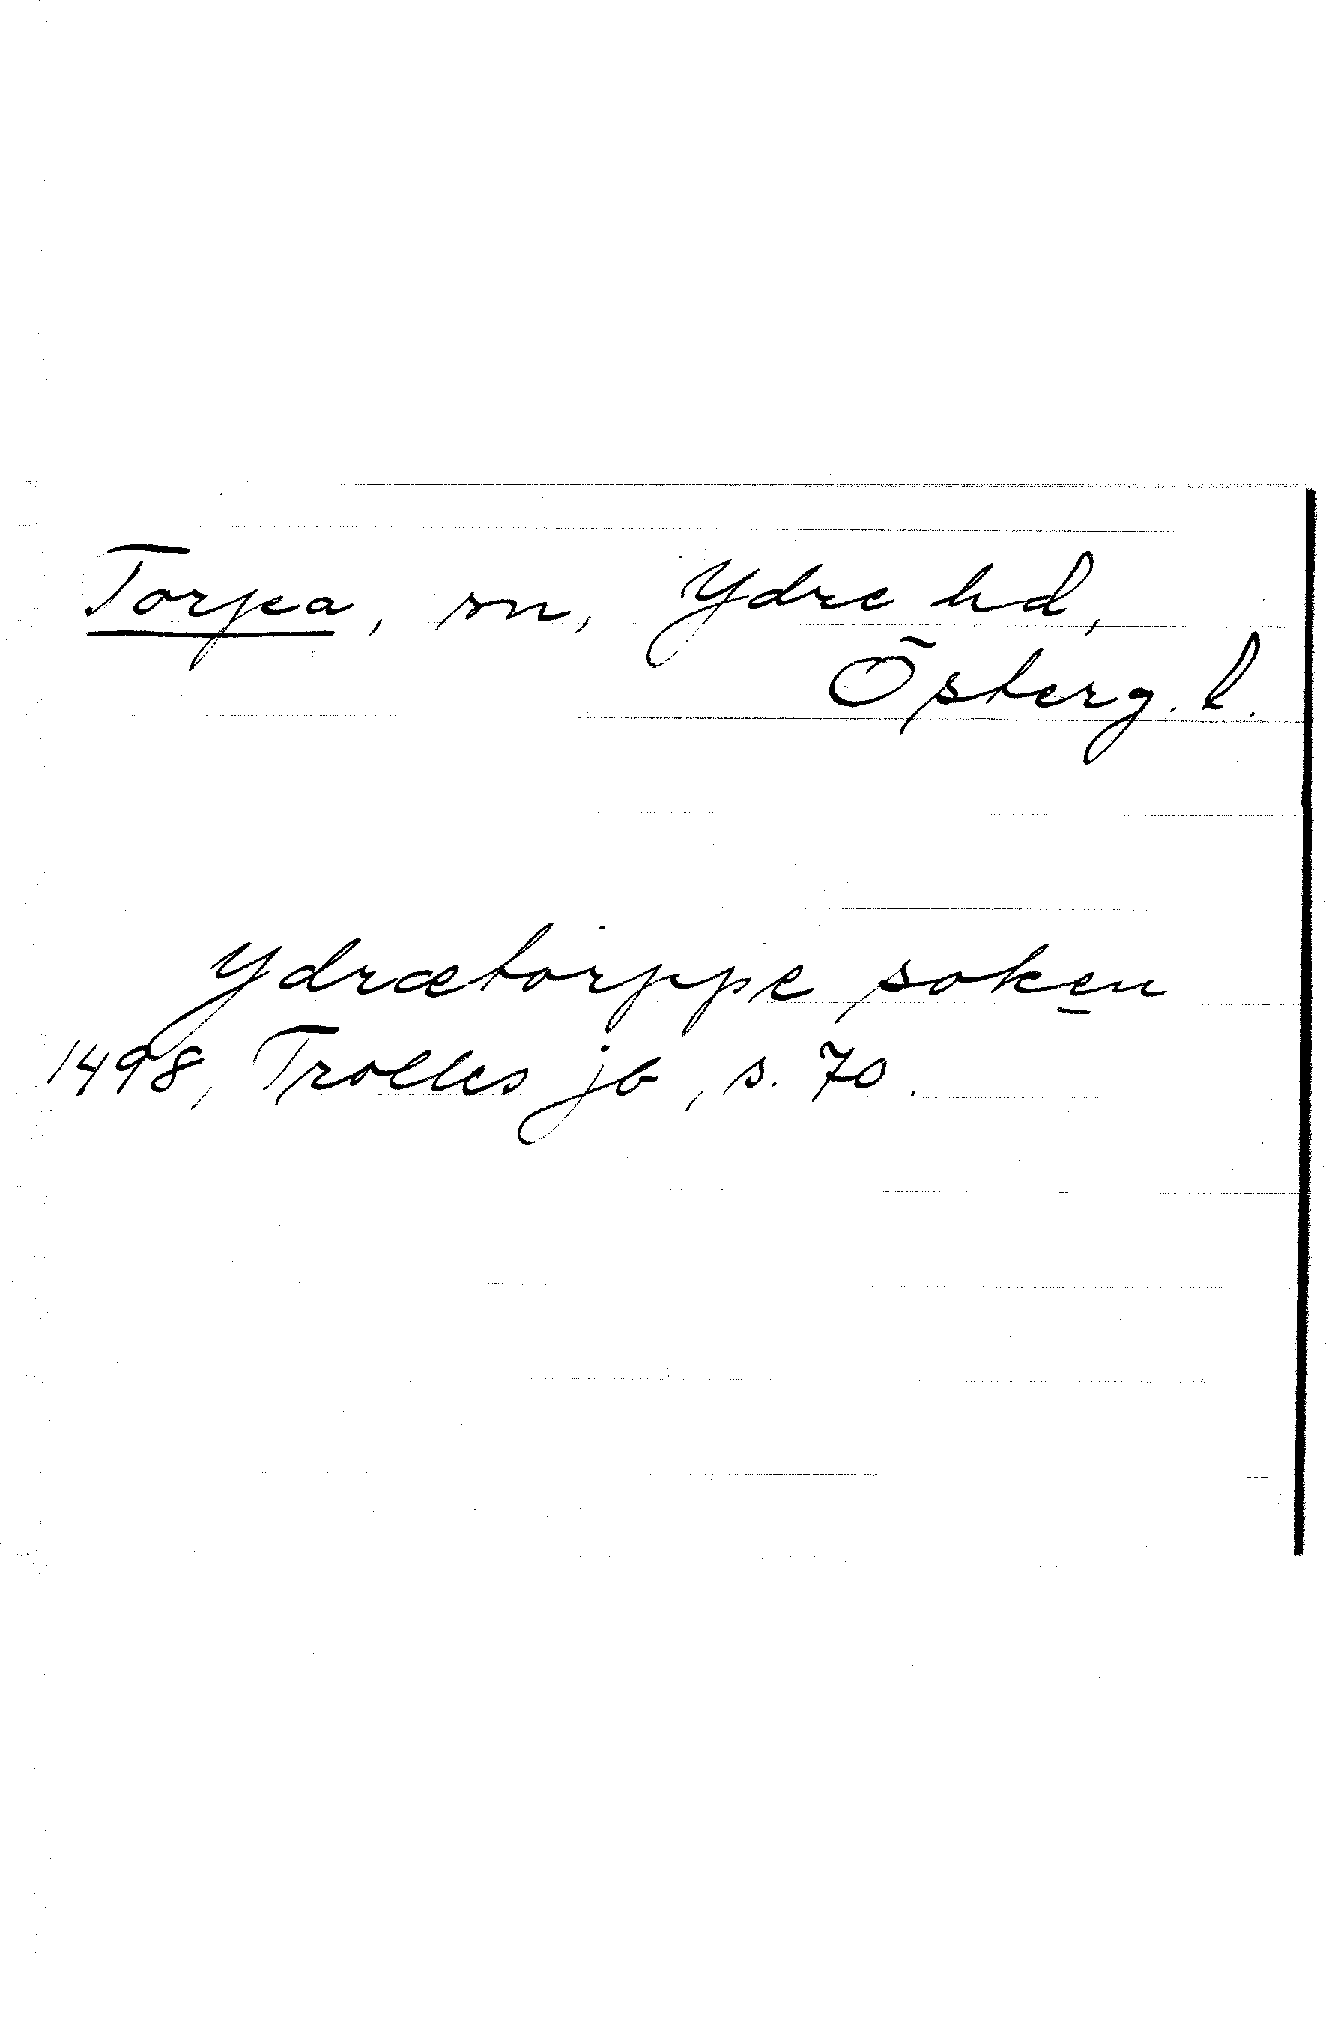 Torpa, sn, Ydre hd,
Österg. l.
Ydrætorppe soken
1498, Trolles jb, s. 70.